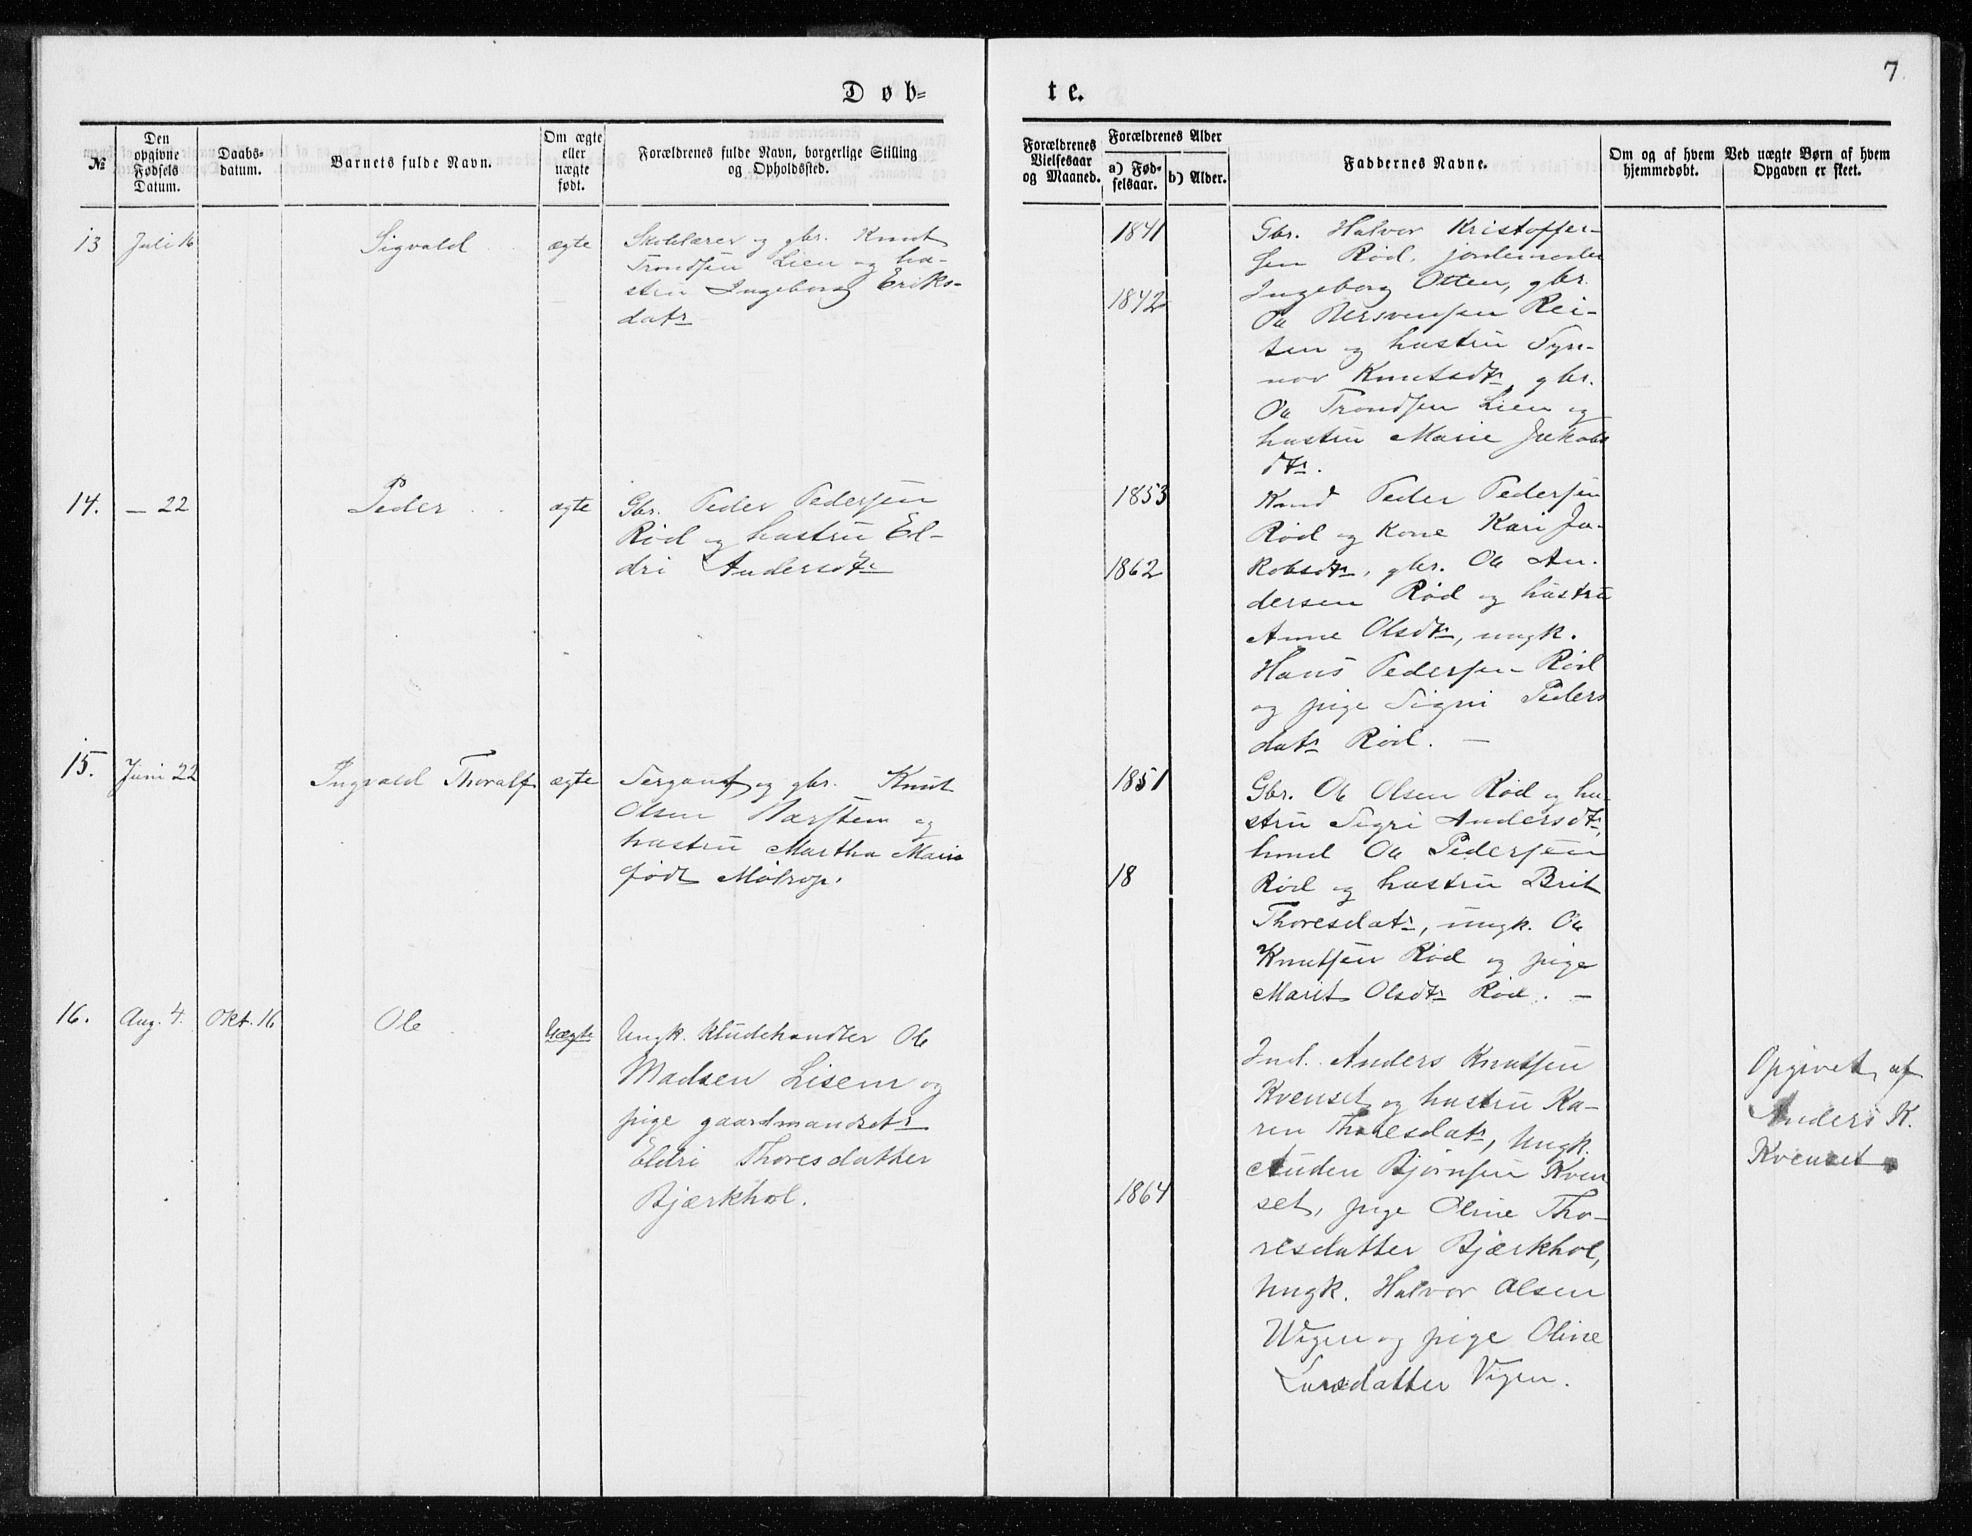 7
Døb-
te.
№
Den opgivne Fødsels Datum.
Daabs-datum.
Barnets fulde Navn.
Om ægte eller uægte født.
Forældrenes fulde Navn, borgerlige Stilling og Opholdssted.
Forældrenes Vielsesaar og Maaned.
Forældrenes Alder
a) Fød-selsaar.
b) Alder.
Faddernes Navne.
Om og af hvem hjemmedøbt.
Ved uægte Børn af hvem Opgaven er skeet.
13
Juli 16
Sigvald
ægte
Skolelærer og gbr. Knut
Trondsen Lien og hu-
stru Ingeborg Eriks-
datr
1841
1842
Gbr. Halvor Kristoffer-
sen Rød, jordemoder
Ingeborg Otten, gbr.
Ole Bersvensen Rei-
ten og hustru Syn-
nøv Knutsdtr, gbr.
Ole Trondsen Lien og
hustru Marie Jakobs
dtr.
14.
— 22
Peder
ægte
Gbr. Peder Pedersen
Rød og hustru El-
dri Andersdtr
1853
1862
Peder Pedersen
Rød og kone Kari Ja-
kobsdtr, gbr. Ole An-
dersen Rød og hustru
Anne Olsdtr, ungk.
Hans Pedersen Rød
og pige Signi Peders
datr Rød. —
15.
Juni 22
Ingvald Thoralf
ægte
Sergant og gbr. Knut
Olsen Harstein og
hustru Martha Marie
født Moltrop.
1851
18
Gbr. Ole Olsen Rød og hu-
stru Sigri Andersdtr,
Ole Pedersen
Rød og hustru Brit
Thoresdatr, ungk. Ole
Knutsen Rød og pige
Marit Olsdtr Rød. —
16.
Aug. 4.
Okt. 16
Ole
Uægte
Ungk. Kludehandler Ole
Madsen Lisem og
pige gaardmandsdtr
Eldri Thoresdatter
Bjærkhol.
1864
Ind. Anders Knutsen
Kvenset og hustru Ka-
ren Thoresdatr, Ungk.
Auden Bjørnsen Kven
set, pige Oline Tho-
resdatter Bjærkhol,
Ungk. Halvor Olsen
Wigen og pige Oline
Larsdatter Vigen.
Opgivet af
Anders K.
Kvenset